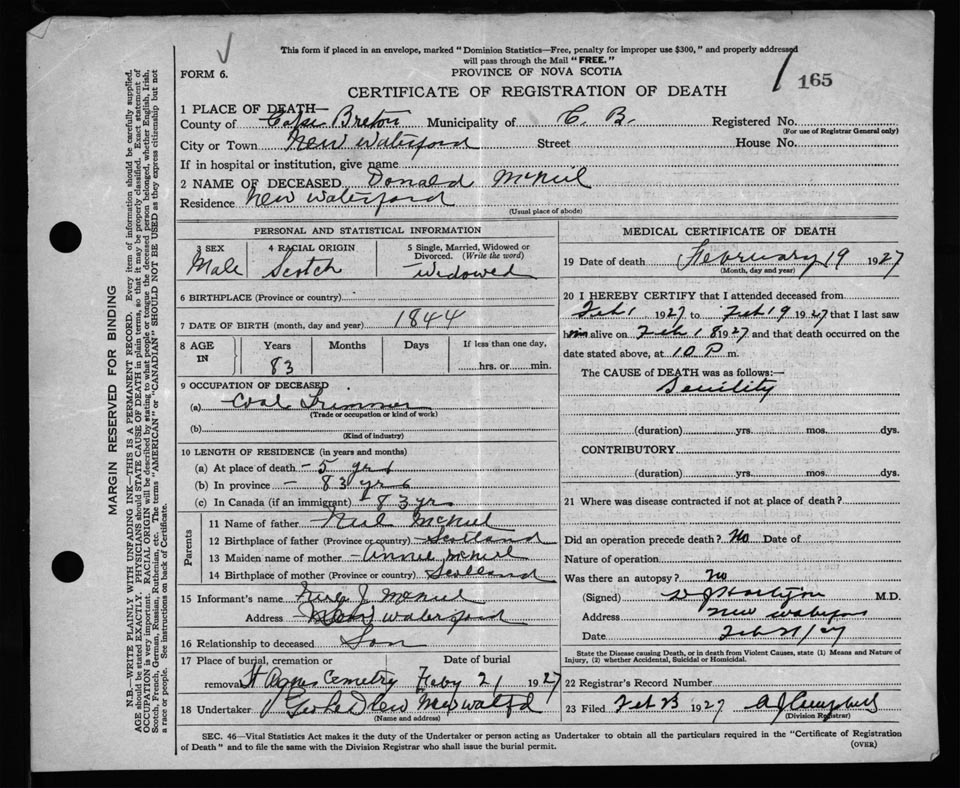 This form if placed in an envelope, marked "Dominion Statistics—Free, penalty for improper use $300," and properly addressed
will pass through the Mail "FREE."
FORM 6.
PROVINCE OF NOVA SCOTIA
165
CERTIFICATE OF REGISTRATION OF DEATH
1 PLACE OF DEATH—
County of Cape Breton Municipality of C. B. Registered No.
(For use of Registrar General only)
City or Town New Waterford Street House No.
If in hospital or institution, give name
2 NAME OF DECEASED Donald McNeil
Residence New Waterford
(Usual place of abode)
PERSONAL AND STATISTICAL INFORMATION
3 SEX 4 RACIAL ORIGIN 5 Single, Married, Widowed or Divorced. (Write the word)
Male Scotch Widowed
6 BIRTHPLACE (Province or country)
7 DATE OF BIRTH (month, day and year) 1844
8 AGE IN Years Months Days If less than one day,
83 hrs. or min.
9 OCCUPATION OF DECEASED
(a) Coal Trimmer
(Trade or occupation or kind of work)
(b)
(Kind of industry)
10 LENGTH OF RESIDENCE (in years and months)
(a) At place of death - 5 yrs
(b) In province - 83 yrs
(c) In Canada (if an immigrant) - 83 yrs
Parents
11 Name of father - Neil McNeil
12 Birthplace of father (Province or country) - Scotland
13 Maiden name of mother - Annie McNeil
14 Birthplace of mother (Province or country) Scotland
15 Informant's name J McNeil
Address New Waterford
16 Relationship to deceased Son
17 Place of burial, cremation or Date of burial
removal St Agnes Cemetry Feby 21, 1927
18 Undertaker
(Name and address)
MEDICAL CERTIFICATE OF DEATH
19 Date of death February 19 1927
(Month, day and year)
20 I HEREBY CERTIFY that I attended deceased from
Feb 1 1927 to Feb 19 1927 that I last saw
him alive on Feb 18 1927 and that death occurred on the
date stated above, at 10 P m.
The CAUSE of DEATH was as follows:—
Senility
(duration) yrs. mos. dys.
CONTRIBUTORY
(duration) yrs. mos. dys.
21 Where was disease contracted if not at place of death?
Did an operation precede death? No Date of
Nature of operation
Was there an autopsy? no
(Signed) M.D.
Address New Waterford
Date
State the Disease causing Death, or in death from Violent Causes, state (1) Means and Nature of
Injury, (2) whether Accidental, Suicidal or Homicidal.
22 Registrar's Record Number
23 Filed Feb 23 1927 A J Campbell
(Division Registrar)
SEC. 46—Vital Statistics Act makes it the duty of the Undertaker or person acting as Undertaker to obtain all the particulars required in the "Certificate of Registration
of Death" and to file the same with the Division Registrar who shall issue the burial permit.
(OVER)
MARGIN RESERVED FOR BINDING
N.B.—WRITE PLAINLY WITH UNFADING INK—THIS IS A PERMANENT RECORD. Every item of information should be carefully supplied.
AGE should be stated EXACTLY. PHYSICIANS should STATE CAUSE OF DEATH in plain terms, so that it may be properly classified. Exact statement of
OCCUPATION is very important. RACIAL ORIGIN will be described by stating to what people or tongue the deceased person belonged, whether English, Irish,
Scotch, French, German, Russian, Ruthenian, etc. The terms "AMERICAN" or "CANADIAN" SHOULD NOT BE USED as they express citizenship but not
a race or people. See instructions on back of Certificate.